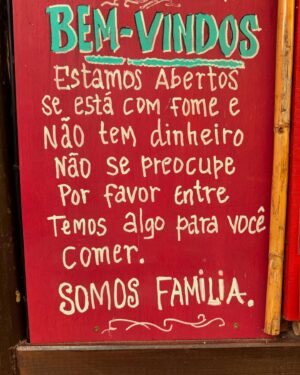 BEM-VINDOS
Estamos Abertos
Se está com fome e
Não tem dinheiro
Não se preocupe
Por favor Entre
Temos algo para você
comer.
SOMOS FAMÍLIA.